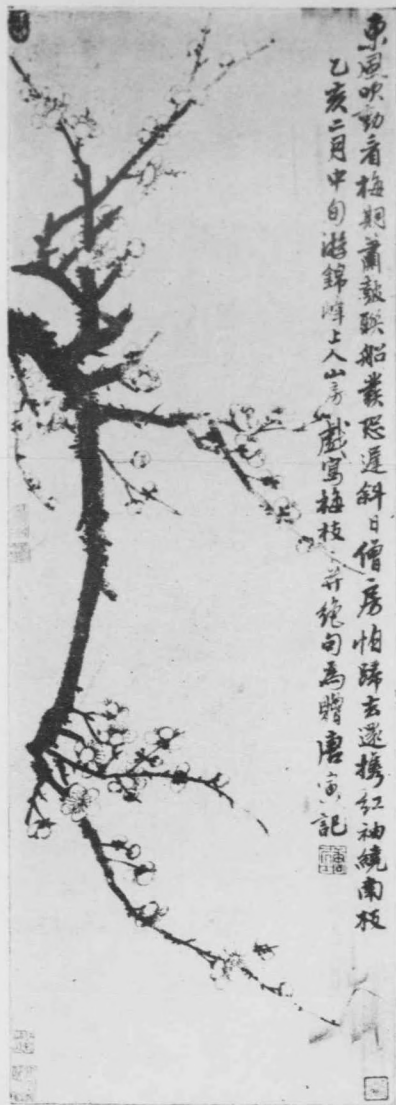 東風吹動看梅期簫鼓聯船發恐遲斜日僧房怕歸去還攜紅袖繞南枝
乙亥二月中旬游錦峰上人山房戲寫梅枝并絕句為贈唐寅記